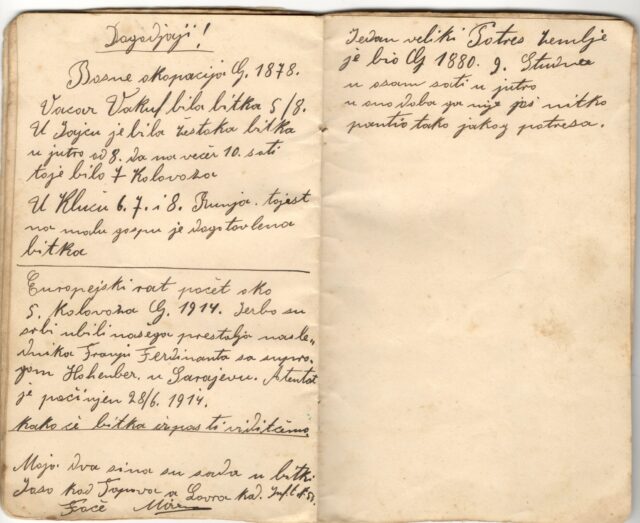 Dogodjaji!
Bosne okopacija G. 1878.
Vacar Vakuf bila bitka 5/8.
U Jajcu je bila žestoka bitka
u jutro od 8. da na večer 10. sati
to je bilo 7 Kolovoza
U Kluču 6. 7. i 8. Runja. tojest
na malu gospu je dogotovlena
bitka
Europejski rat počet oko
5. Kolovoza G. 1914. Jerbo su
srbi ubili našega prestolja nasle„
dnika Franju Ferdinanta sa supru„
gom Hohenber. u Sarajevu. Atentat
je počinjen 28/6. 1914.
kako će bitka izpasti vidićemo.
Moja dva sina su sada u bitki
Joso kod Topova a Lovra kod.
Foče
Jedan veliki Potres zemlje
je bio G 1880. 9. Studna
u osam sati u jutro
u ono doba ga nije još nitko
pantio tako jakog potresa.